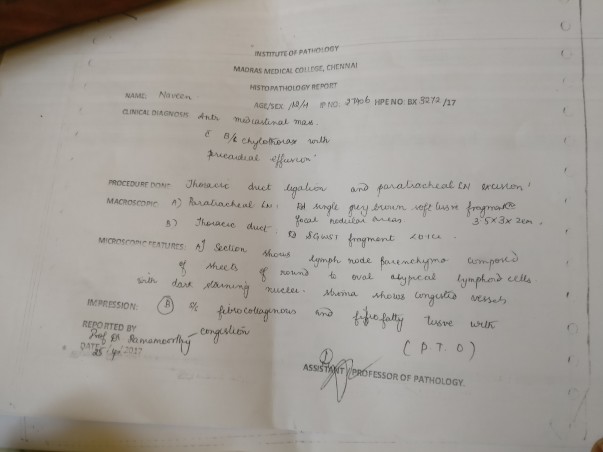 INSTITUTE OF PATHOLOGY
MADRAS MEDICAL COLLEGE, CHENNAI
HISTOPATHOLOGY REPORT
NAME: Naveen AGE/SEX IP NO: HPE NO: BX 3272/17
CLINICAL DIAGNOSIS: Antr mediastinal mass.
c B/L chylothorax with
pericardial effusion.
PROCEDURE DONE: Thoracic duct ligation and paratracheal LN excision.
MACROSCOPIC: A) Paratracheal LN: Rd single grey brown soft tissue fragment
focal nodular areas 3.5x3x2cm.
B) Thoracic duct. Rd SGWST fragment
MICROSCOPIC FEATURES: A) Section shows lymph node parenchyma composed
of sheets of round to oval atypical lymphoid cells
with dark staining nuclei. Stroma shows congested vessels
IMPRESSION: (B) fibrocollagenous and fibrofatty tissue with
congestion
(P.T.O)
REPORTED BY
Prof Ramamoorthy
DATE: 2017
ASSISTANT PROFESSOR OF PATHOLOGY.